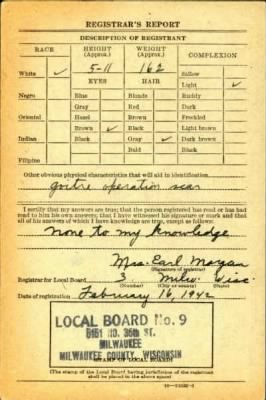 REGISTRAR'S REPORT
DESCRIPTION OF REGISTRANT
RACE HEIGHT (Approx.) WEIGHT (Approx.) COMPLEXION
White ✓ 5-11 162 Sallow
EYES HAIR Light ✓
Negro Blue Blonde Ruddy
Gray Red Dark
Oriental Hazel Brown Freckled
Brown ✓ Black Light brown
Indian Black Gray ✓ Dark brown
Bald Black
Filipino
Other obvious physical characteristics that will aid in identification
goitre operation scar
I certify that my answers are true; that the person registered has read or has had
read to him his own answers; that I have witnessed his signature or mark and that
all of his answers of which I have knowledge are true, except as follows:
None to my knowledge
Mrs. Earl Morgan
(Signature of registrar)
Registrar for Local Board 3 Milw. Wisc.
(Number) (City or county) (State)
Date of registration February 16, 1942
LOCAL BOARD No. 9
5151 NO. 35th ST.
MILWAUKEE
MILWAUKEE COUNTY, WISCONSIN
(STAMP OF LOCAL BOARD)
(The stamp of the Local Board having jurisdiction of the registrant
shall be placed in the above space)